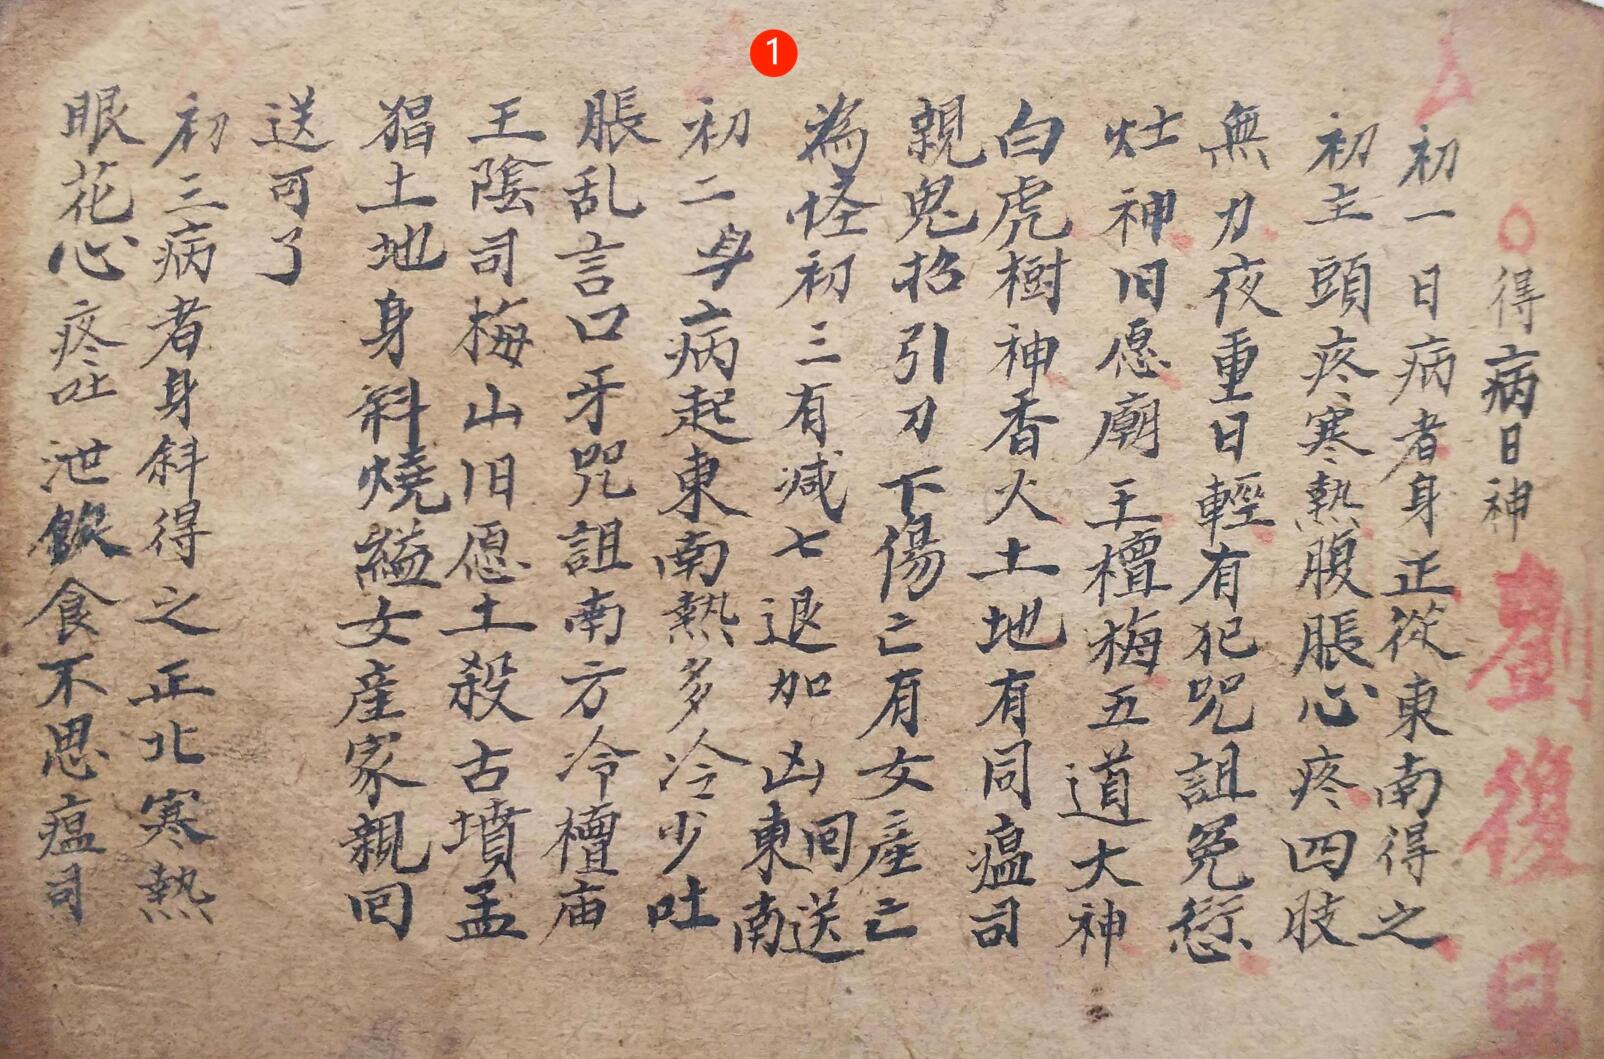 1
得病日神
劉復日
初一日病者身正從東南得之
初主頭疼寒熱腹脹心疼四肢
無力夜重日輕有犯咒詛冤愆
灶神旧愿廟王檀梅五道大神
白虎樹神香火土地有同瘟司
親鬼招引刀下傷亡有女產亡
為怪初三有减七退加凶東南回送
初二身病起東南熱多冷少吐
脹乱言口牙咒詛南方冷檀庙
王陰司梅山旧愿土殺古墳孟
猖土地身斜燒縊女產家親回
送可了
初三病者身斜得之正北寒熱
眼花心疼吐泄飲食不思瘟司